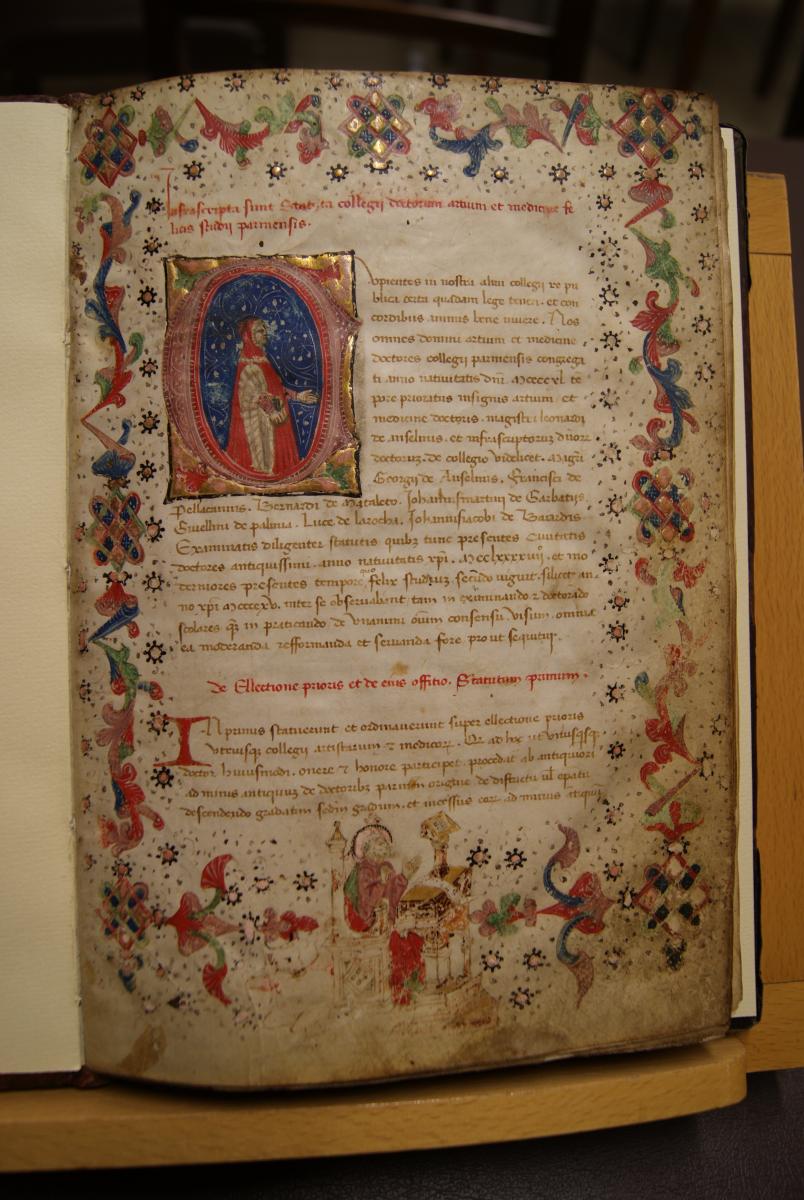 Infrascripta sunt Statuta collegii doctorum artium et medicine fe
licis studii parmensis.
Cupientes in nostra alma collegii re pu
blica certa quadam lege teneri. et con
cordibus animis bene vivere. Nos
omnes domini artium et medicine
doctores collegii parmensis congrega
ti anno nativitatis dni. Mccccxl. te
pore prioratus insignis artium et
medicine doctoris. magistri leonardi
de anselmis. et infrascriptoruz duore
doctoruz. de collegio videlicet. Magri
Georgii de Anselmis. Francisci de
Pellacanis. Bernardi de Mataleto. Johannismartini de Garbatijs
Givellini de palmia. Luce de larocha. Johannisiacobi de Baiardis
Examinatis diligenter statutis quibz tunc presentes civitatis
doctores antiquissimi. anno nativitatis xpi. Mcclxxxxviij. et mo
derniores presentes tempore quo felix studiuz secundo viguit. silicet an
no xpi Mccccxv. inter se observabant tam in examinando et doctorado
scolares q in praticando de unanimi oium consensu visum. omnia
ea moderanda refformanda et servanda fore prout sequitur.
de Ellectione prioris et de eius offitio. Statutum primum.
IN primis statuerunt et ordinaverunt super ellectione prioris
utriusq collegii artistarum et medicor. Q ad hoc ut utriusq
doctor huiusmodi. onere et honore participet. procedat ab antiquiori
ad minus antiquuz de doctoribz parmen origine de districtu vel epatu
descendendo gradatim sedm gradum. et incessus eor. ad minus antiqui